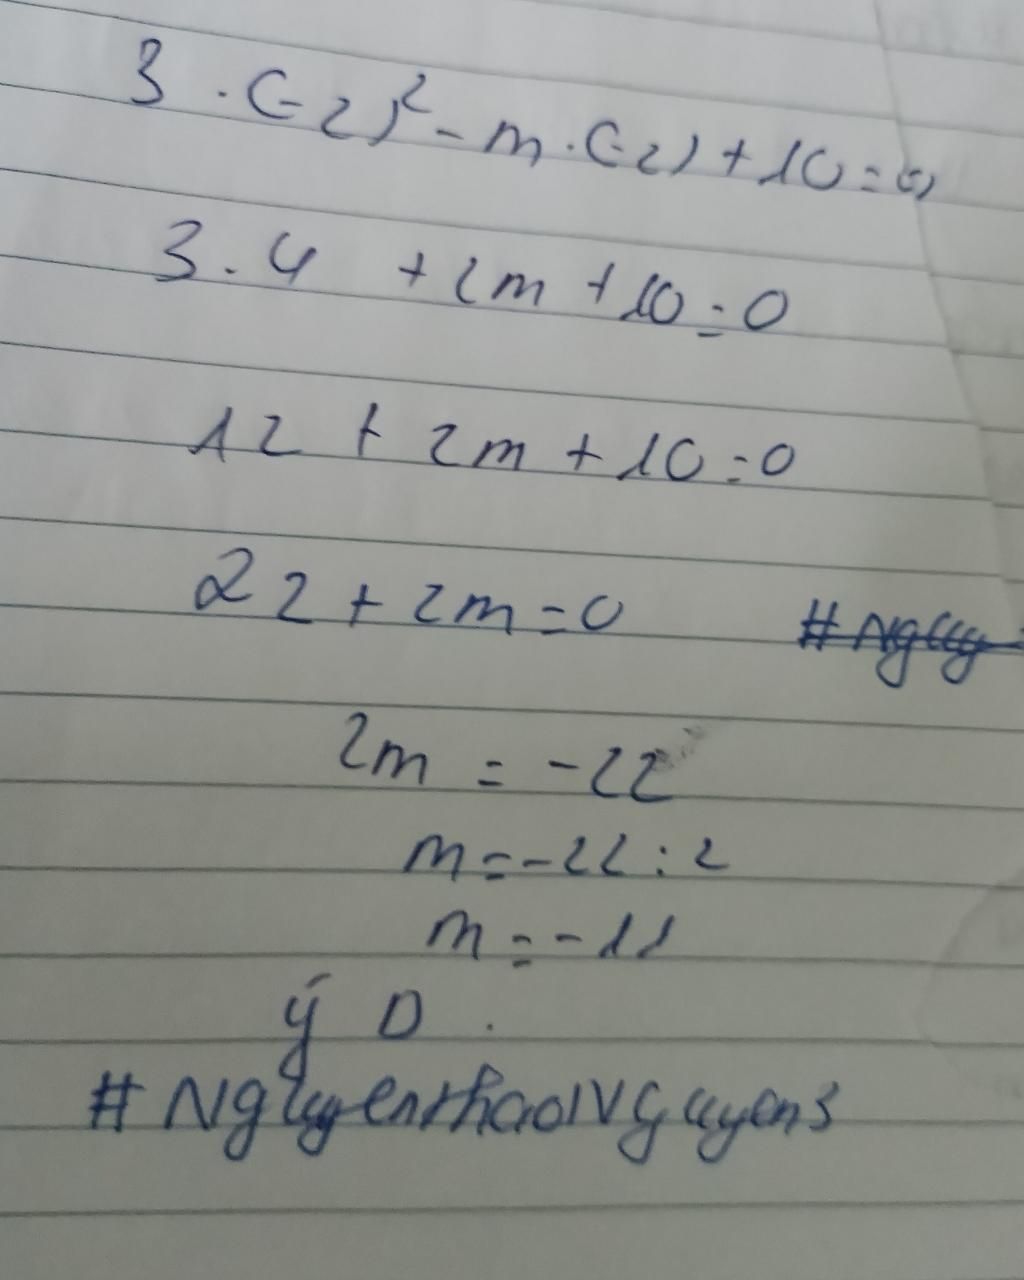 3 . (-2)² - m . (-2) + 10 = 0
3 . 4 + 2m + 10 = 0
12 + 2m + 10 = 0
22 + 2m = 0
2m = -22
m = -22 : 2
m = -11
ý D .
#NguyenthaoNguyen3